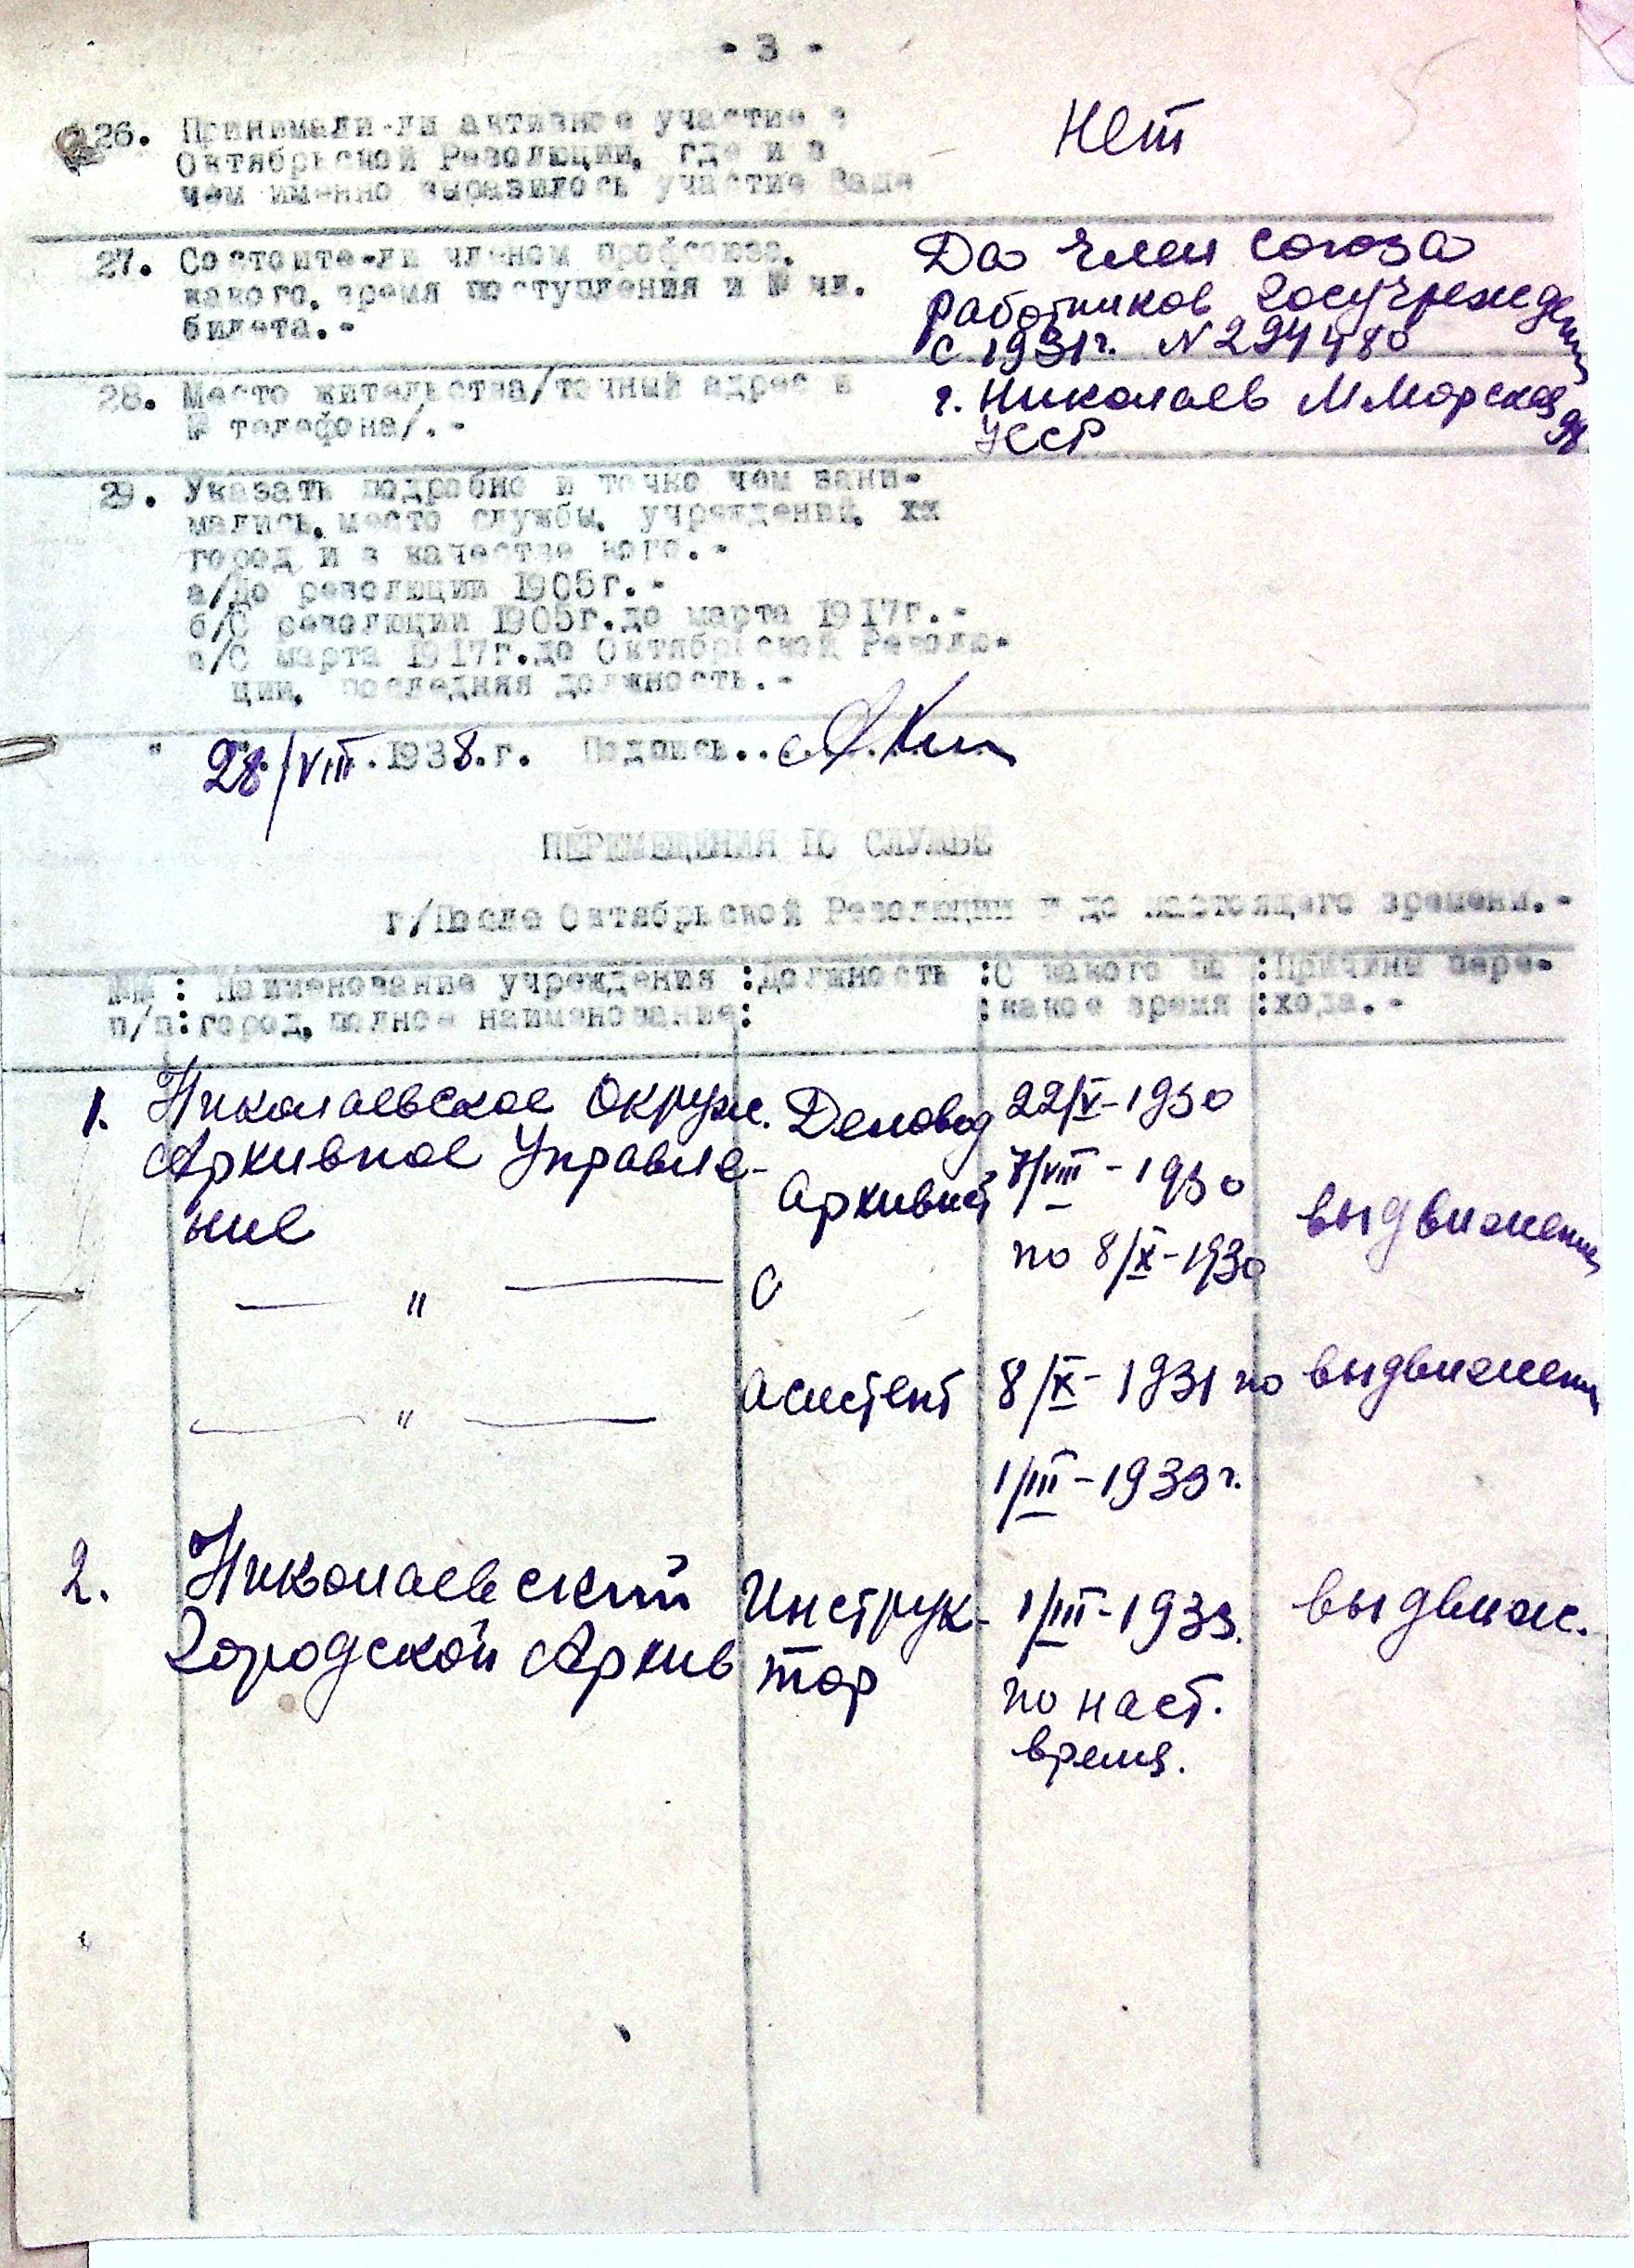 - 3 -
26. Принимали-ли активное участие в
Октябрьской Революции, где и в
чем именно выразилось участие Ваше
Нет
27. Состоите-ли членом профсоюза,
какого, время поступления и № чл.
билета.-
Да член союза
работников госучрежден
с 1931г. N 294480
28. Место жительства/точный адрес и
№ телефона/.-
г. Николаев М Морская
УССР
29. Указать подробно и точно чем зани-
мались, место службы, учреждений, хх
город и в качестве кого.-
а/До революции 1905г.-
б/С революции 1905г.до марта 1917г.-
в/С марта 1917г.до Октябрьской Револю-
ции, последняя должность.-
" 28/VIII.1938.г. Подпись..
ПЕРЕМЕЩЕНИЯ ПО СЛУЖБЕ
г/После Октябрьской Революции и до настоящего времени.-
№№ : Наименование учреждения :Должность :С какого по :Причины пере-
п/п:город, полное наименование: :какое время :хода.-
1. Николаевское Окруж. Деловод 22/V-1930
Архивное Управле- 7/VIII-1930
ние Архивной выдвижение
по 8/X-1930
— " — С
Асистент 8/X-1931 по выдвижени
— " —
1/III-1933г.
2. Николаевский Инструк- 1/III-1933. выдвиж.
Городской Архив тор
по наст.
время.